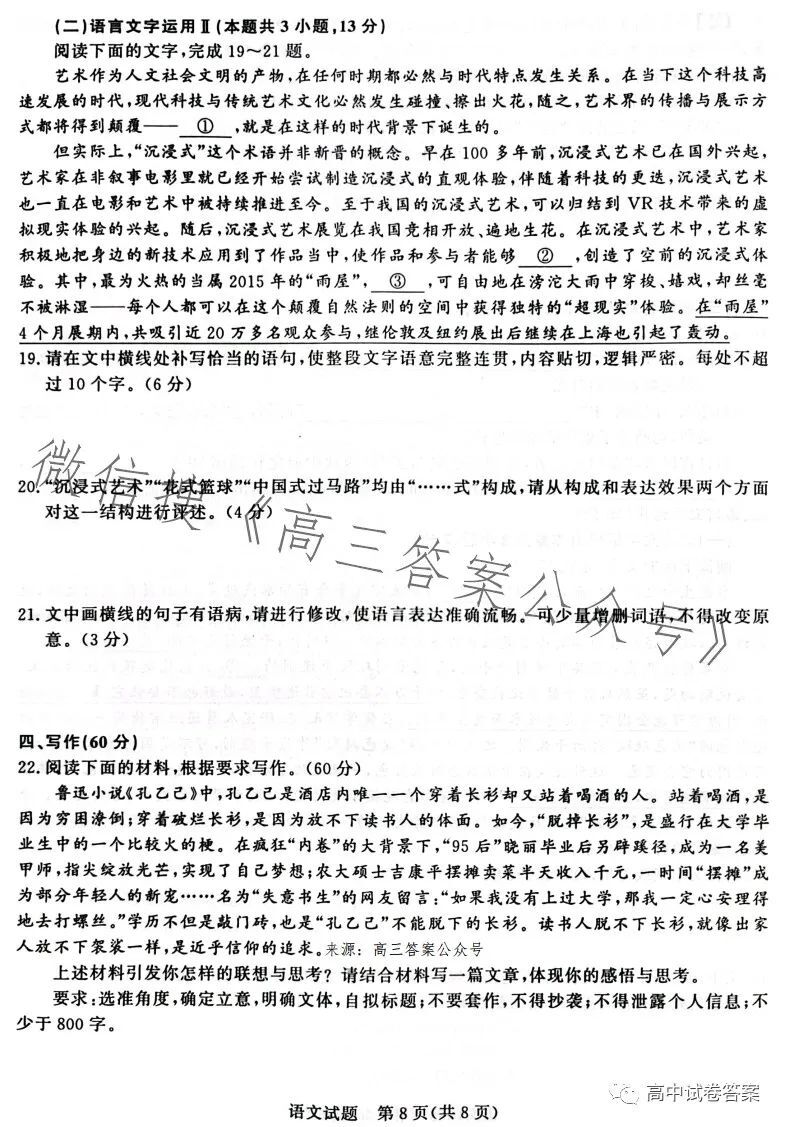 (二)语言文字运用Ⅱ(本题共3小题,13分)
阅读下面的文字,完成19~21题。
艺术作为人文社会文明的产物,在任何时期都必然与时代特点发生关系。在当下这个科技高
速发展的时代,现代科技与传统艺术文化必然发生碰撞、擦出火花,随之,艺术界的传播与展示方
式都将得到颠覆—— ① ,就是在这样的时代背景下诞生的。
但实际上,“沉浸式”这个术语并非新晋的概念。早在100多年前,沉浸式艺术已在国外兴起,
艺术家在非叙事电影里就已经开始尝试制造沉浸式的直观体验,伴随着科技的更迭,沉浸式艺术
也一直在电影和艺术中被持续推进至今。至于我国的沉浸式艺术,可以归结到VR技术带来的虚
拟现实体验的兴起。随后,沉浸式艺术展览在我国竞相开放、遍地生花。在沉浸式艺术中,艺术家
积极地把身边的新技术应用到了作品当中,使作品和参与者能够 ② ,创造了空前的沉浸式体
验。其中,最为火热的当属2015年的“雨屋”, ③ ,可自由地在滂沱大雨中穿梭、嬉戏,却丝毫
不被淋湿——每个人都可以在这个颠覆自然法则的空间中获得独特的“超现实”体验。在“雨屋”
4个月展期内,共吸引近20万多名观众参与,继伦敦及纽约展出后继续在上海也引起了轰动。
19.请在文中横线处补写恰当的语句,使整段文字语意完整连贯,内容贴切,逻辑严密。每处不超
过10个字。(6分)
20.“沉浸式艺术”“花式篮球”“中国式过马路”均由“……式”构成,请从构成和表达效果两个方面
对这一结构进行评述。(4分)
21.文中画横线的句子有语病,请进行修改,使语言表达准确流畅。可少量增删词语,不得改变原
意。(3分)
微信搜《高三答案公众号》
四、写作(60分)
22.阅读下面的材料,根据要求写作。(60分)
鲁迅小说《孔乙己》中,孔乙己是酒店内唯一一个穿着长衫却又站着喝酒的人。站着喝酒,是
因为穷困潦倒;穿着破烂长衫,是因为放不下读书人的体面。如今,“脱掉长衫”,是盛行在大学毕
业生中的一个比较火的梗。在疯狂“内卷”的大背景下,“95后”晓丽毕业后另辟蹊径,成为一名美
甲师,指尖绽放光芒,实现了自己梦想;农大硕士吉康平摆摊卖菜半天收入千元,一时间“摆摊”成
为部分年轻人的新宠……名为“失意书生”的网友留言:“如果我没有上过大学,那我一定心安理得
地去打螺丝。”学历不但是敲门砖,也是“孔乙己”不能脱下的长衫。读书人脱不下长衫,就像出家
人放不下袈裟一样,是近乎信仰的追求。来源：高三答案公众号
上述材料引发你怎样的联想与思考？请结合材料写一篇文章,体现你的感悟与思考。
要求:选准角度,确定立意,明确文体,自拟标题;不要套作,不得抄袭;不得泄露个人信息;不
少于800字。
高中试卷答案
语文试题 第8页(共8页)